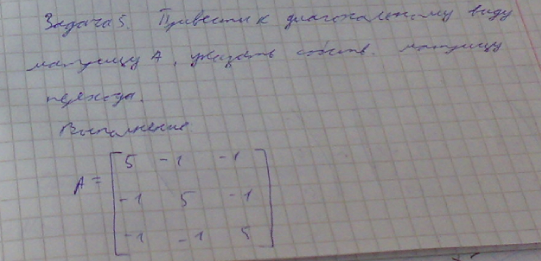 Задача 5. Привести к диагональному виду
матрицу А, указать соотв. матрицу
перехода.
Выполнение
A = [ 5 -1 -1
-1 5 -1
-1 -1 5 ]